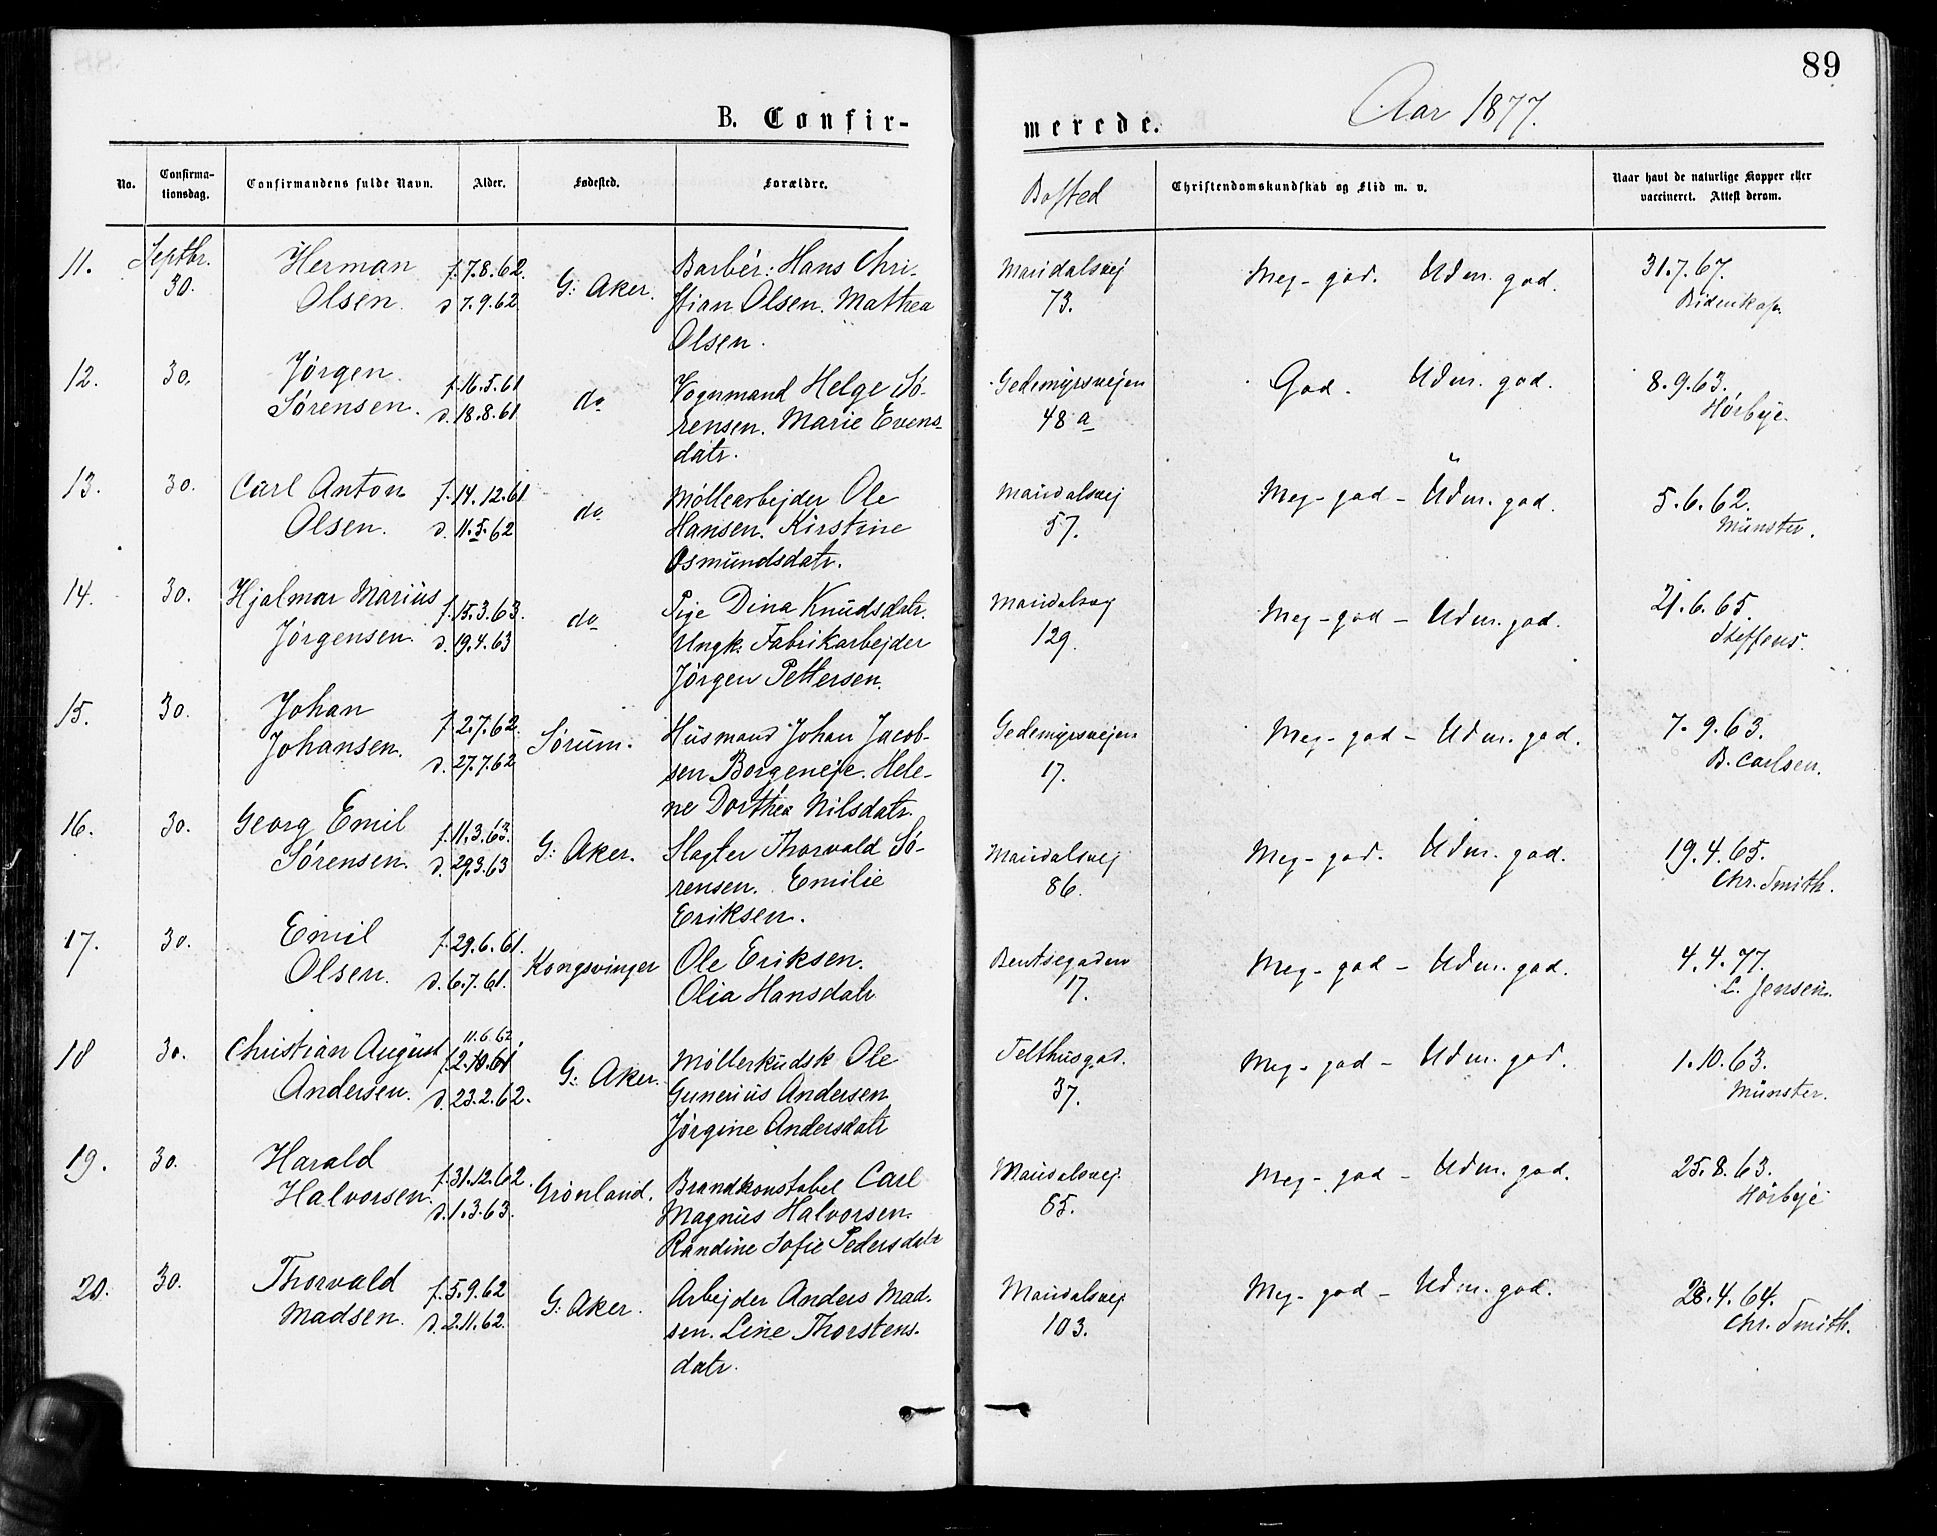 89
B. Confir-
merede.
Aar 1877.
No.
Confirma-
tionsdag.
Confirmandens fulde Navn.
Alder.
Fødested.
Forældre.
Bosted
Christendomskundskab og Flid m. v.
Naar havt de naturlige Kopper eller
vaccineret. Attest derom.
11. Septbr. Herman f. 7.8.62. G: Aker. Barbér: Hans Chri- Maridalsvej Meg- god. Udm. god. 31.7.67.
30. Olsen. d 7.9.62 stian Olsen. Mathea 73. Bidenkap.
Olsen.
12. 30. Jørgen f. 16.5.61 do Vognmand Helge Sö- Gedemyrsvejen God. Udm. god. 8.9.63.
Sörensen. d. 18.8.61 rensen. Marie Evens- 48 a Hörbye.
datr.
13. 30. Carl Anton f. 14.12.61 do Möllearbejder Ole Maridalsvej Meg- god - Udm. god. 5.6.62.
Olsen. d. 11.5.62 Hansen. Kirstine 57. Münster.
Osmundsdatr.
14. 30. Hjalmar Marius f. 15.3.63. do Pige Dina Knudsdatr. Maridalsvej Meg- god - Udm. god. 21.6.65
Jörgensen d. 19.4.63 Ungk. Fabrikarbejder 129. Steffens.
Jörgen Pettersen.
15. 30. Johan f. 2.7.62. Sörum. Husmand Johan Jacob- Gedemyrsvejen Meg- god - Udm. god. 7.9.63.
Johansen. d. 27.7.62 sen Borgeneje. Hele- 17. B. Carlsen.
ne Dorthea Nilsdatr.
16. 30. Georg Emil f. 11.3.63. G: Aker. Slagter Thorvald Sö- Maridalsvej Meg- god. Udm. god. 19.4.65.
Sörensen. d. 29.3.63 rensen. Emilie 86. Chr. Smith.
Eriksen.
17. 30. Emil f. 29.6.61. Kongsvinger Ole Eriksen. Bentsegaden Meg- god - Udm. god. 4.4.77.
Olsen. d. 6.7.61. Olia Hansdatr 17. L. Jensen.
11.6.62.
18 30. Christian August f. 2.10.61 G: Aker. Möllerkudsk Ole Telthusgad. Meg- god - Udm. god. 1.10.63.
Andersen. d. 23.2.62. Gunerius Andersen 37. Münster.
Jörgine Andersdatr
19. 30. Harald f. 31.12.62. Grönland. Brandkonstabel Carl Maridalsvej. Meg- god - Udm. god. 25.8.63.
Halvorsen. d. 1.3.63. Magnus Halvorsen. 85. Hörbye
Randine Sofie Pedersdatr
20. 30. Thorvald f. 5.9.62 G: Aker. Arbejder Anders Mad- Maridalsvej Meg- god - Udm. god. 28.4.64.
Madsen. d. 2.11.62. sen. Line Thorstens- 103. Chr. Smith.
datr.